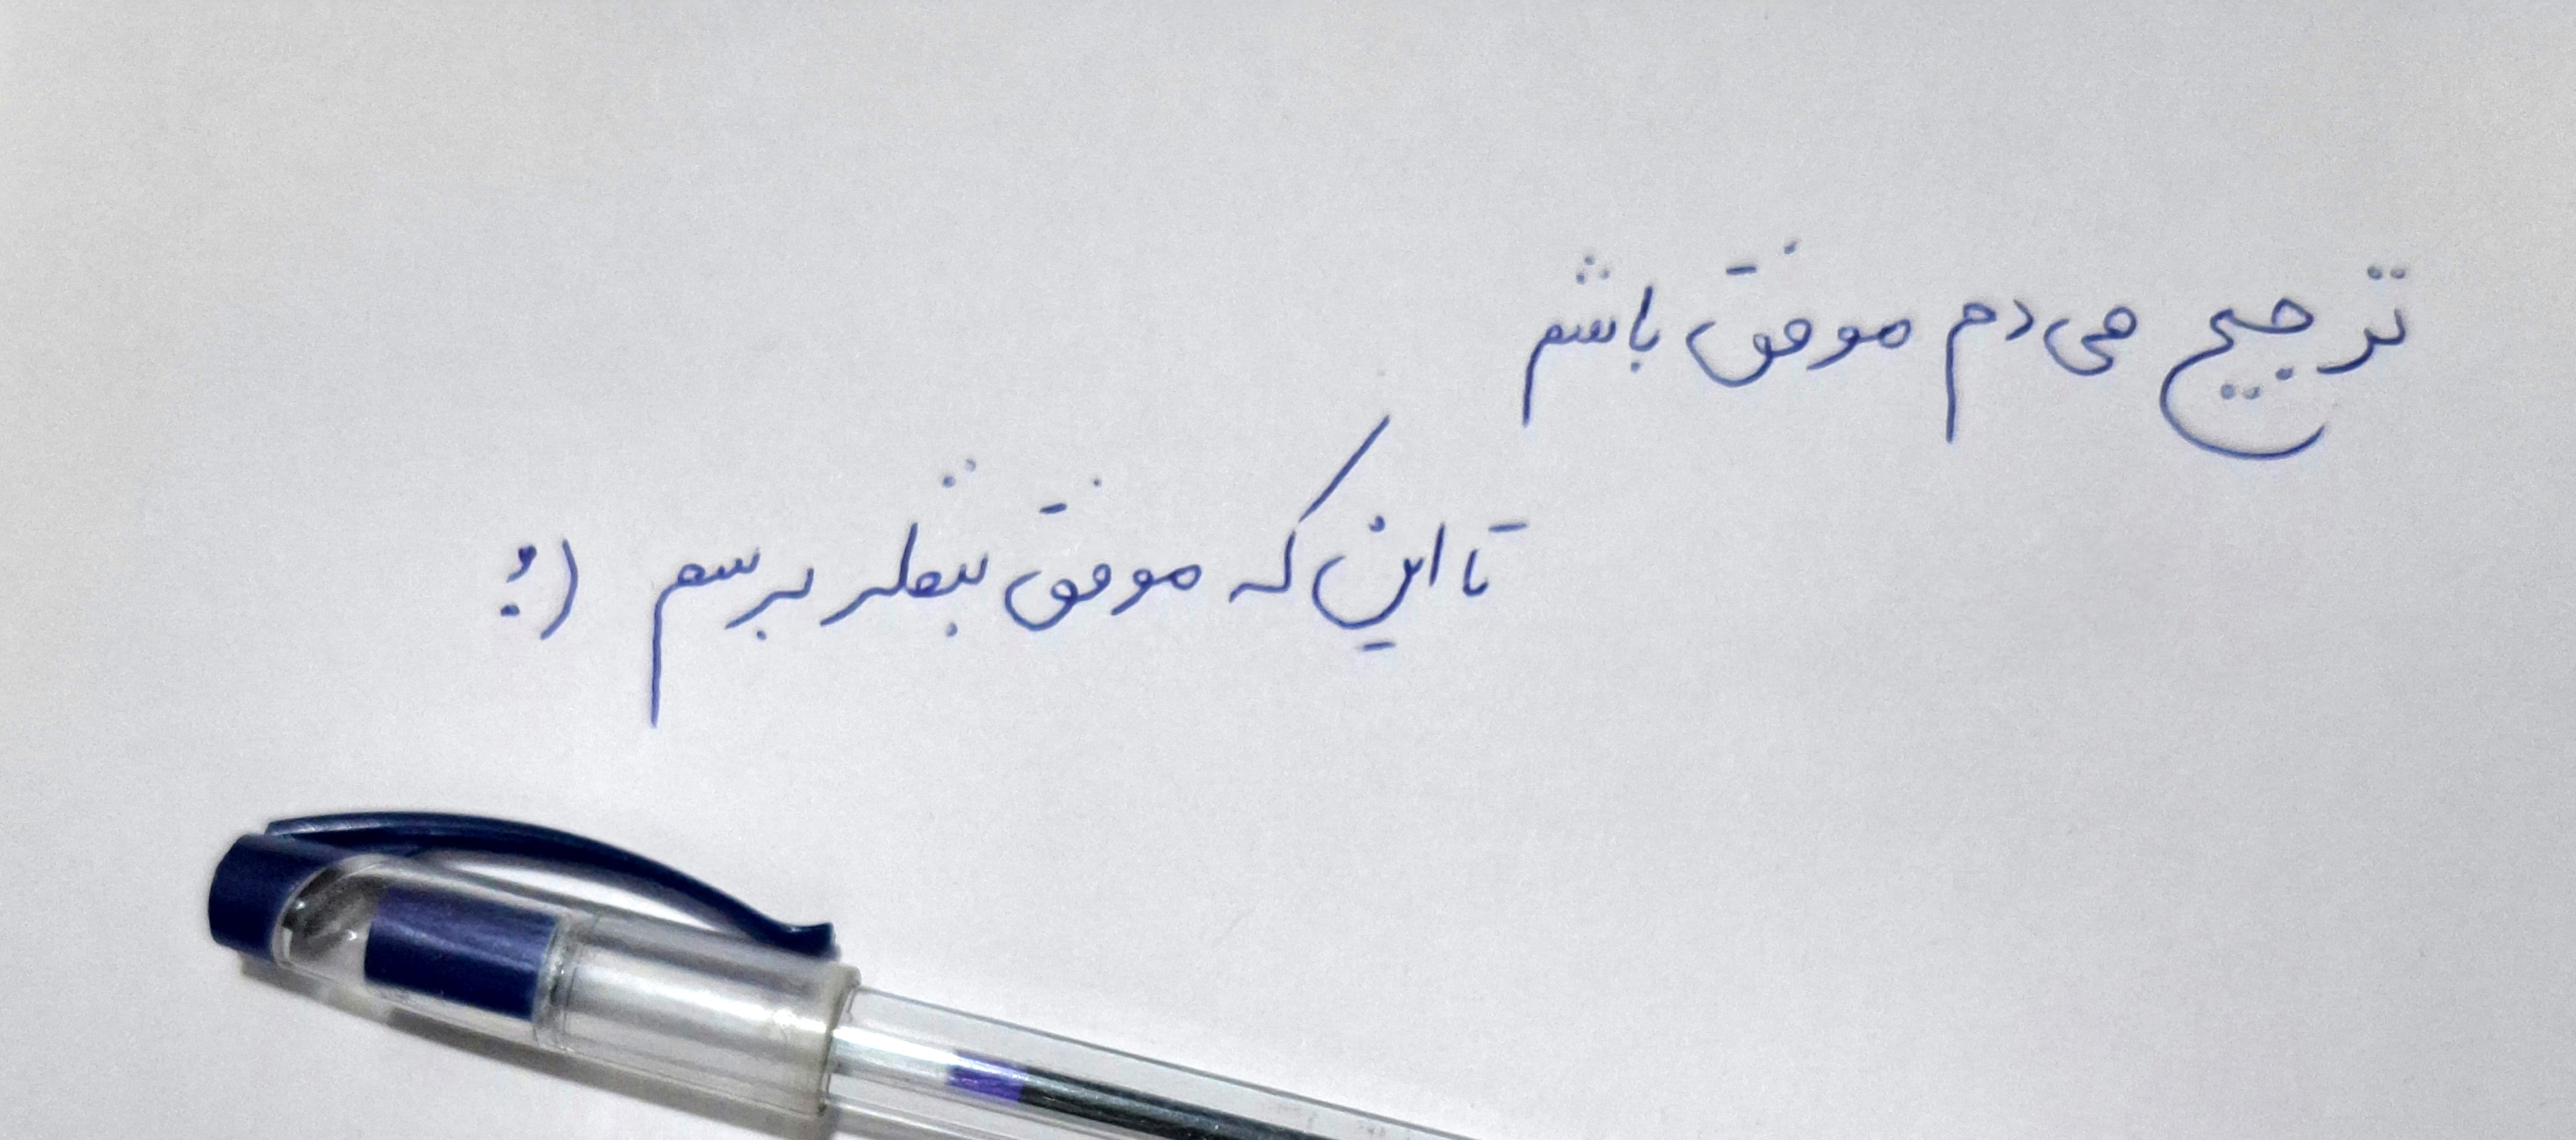 ترجیح می‌دم موفق باشم
تا این که موفق بنظر برسم (؛